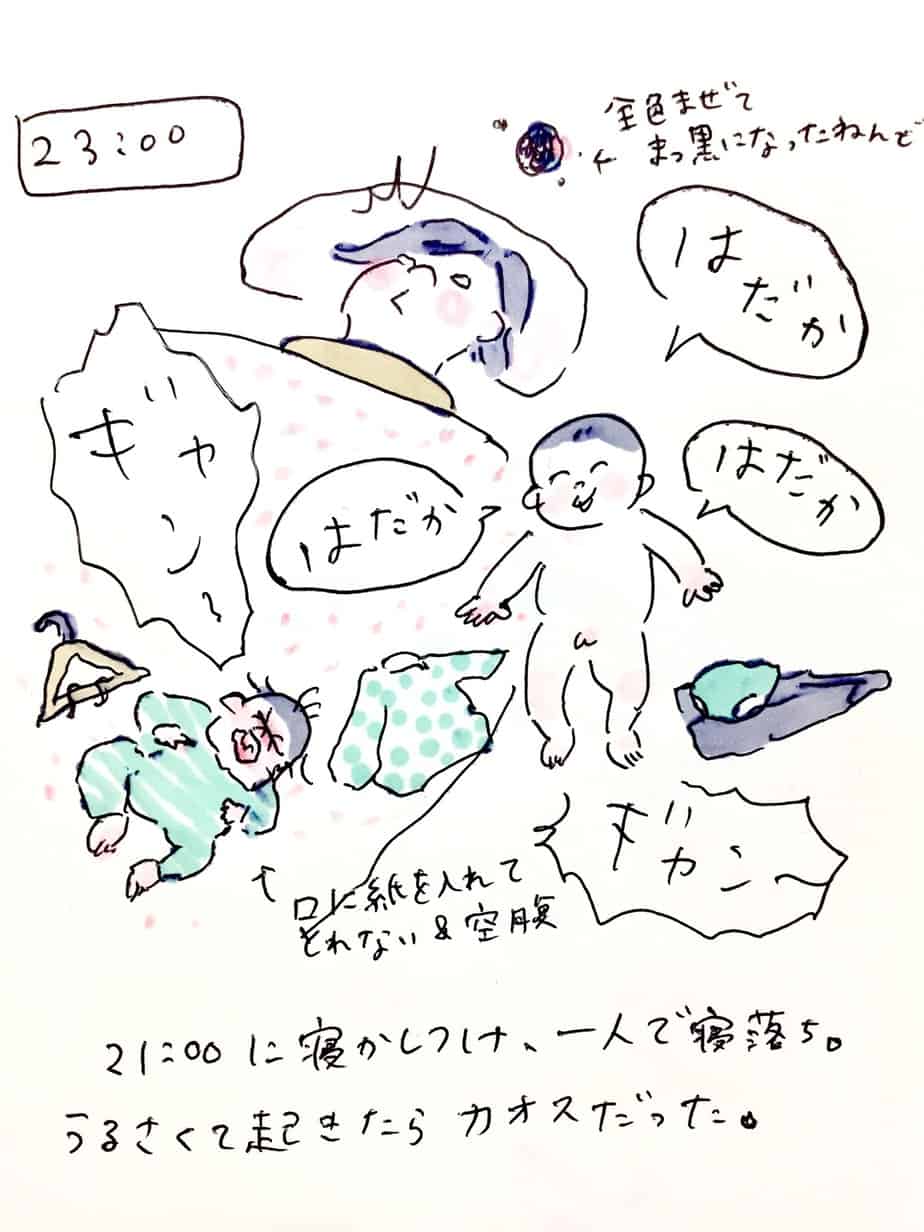 23:00
全色まぜて
まっ黒になったねんど
はだか
はだか
はだか
ギャン〜
ギャン〜
口に紙を入れて
とれない&空腹
21:00に寝かしつけ、一人で寝落ち。
うるさくて起きたらカオスだった。